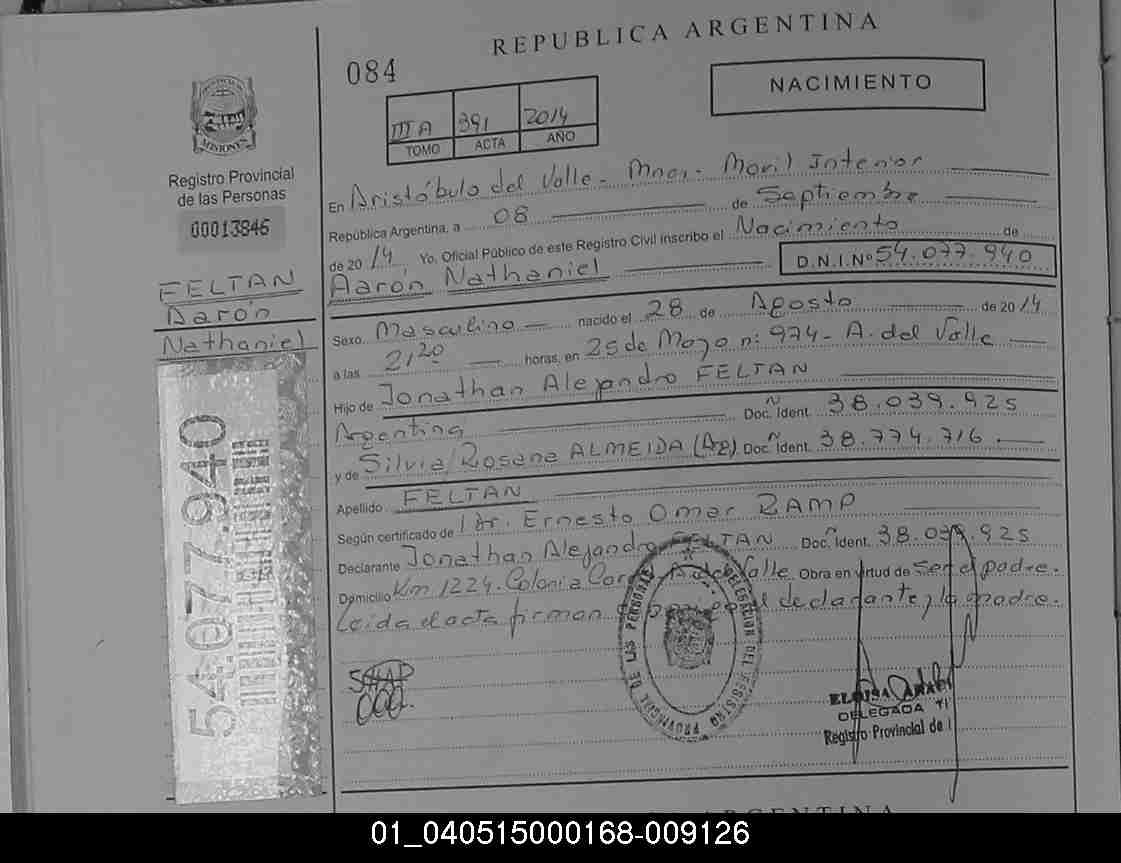 REPUBLICA ARGENTINA
084
NACIMIENTO
III A 391 2014
TOMO ACTA AÑO
PROVINCIA DE
MISIONES
Registro Provincial
de las Personas
00013846
FELTAN
Aarón
Nathaniel
54.077.940
En Aristóbulo del Valle - Mnes.- Movil Interior
República Argentina, a 08 de Septiembre
de 2014, Yo, Oficial Público de este Registro Civil inscribo el Nacimiento de
Aarón Nathaniel D.N.I.Nº 54.077.940
Sexo Masculino nacido el 28 de Agosto de 2014
a las 21,20 horas, en 25 de Mayo nº 974 - A. del Valle
Hijo de Jonathan Alejandro FELTAN
Argentina Doc. Ident. 38.039.925
y de Silvia Rosana ALMEIDA (Arg). Doc. Ident. 38.774.716
Apellido FELTAN
Según certificado de Dr. Ernesto Omar RAMP
Declarante Jonathan Alejandro FELTAN Doc. Ident. 38.039.925
Domicilio Km 1224. Colonia A. del Valle Obra en virtud de Ser el padre.
Leida el acta firman el declarante y la madre.
DELEGACION DEL REGISTRO PROVINCIAL DE LAS PERSONAS
ELOISA
DELEGADA
Registro Provincial de l
ARGENTINA
01_040515000168-009126